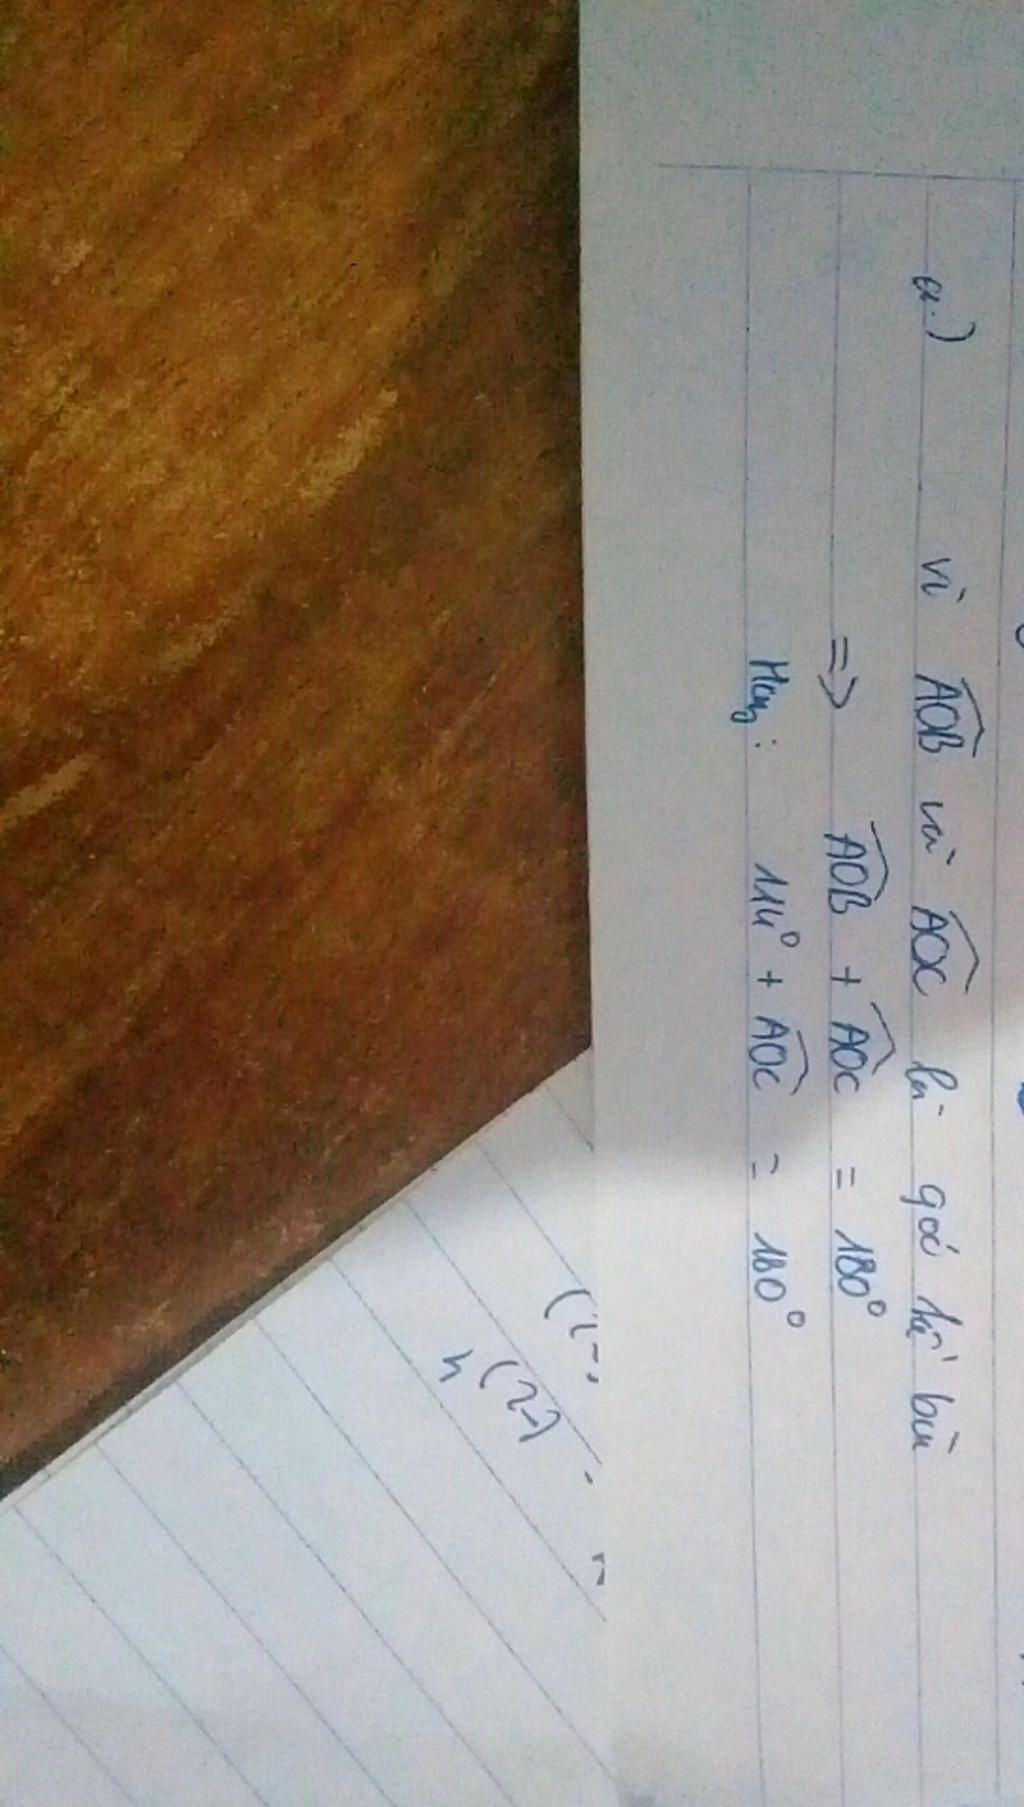 a.) vì AOB và AOC là góc kề bù
=> AOB + AOC = 180°
Hay: 114° + AOC = 180°
(-2)